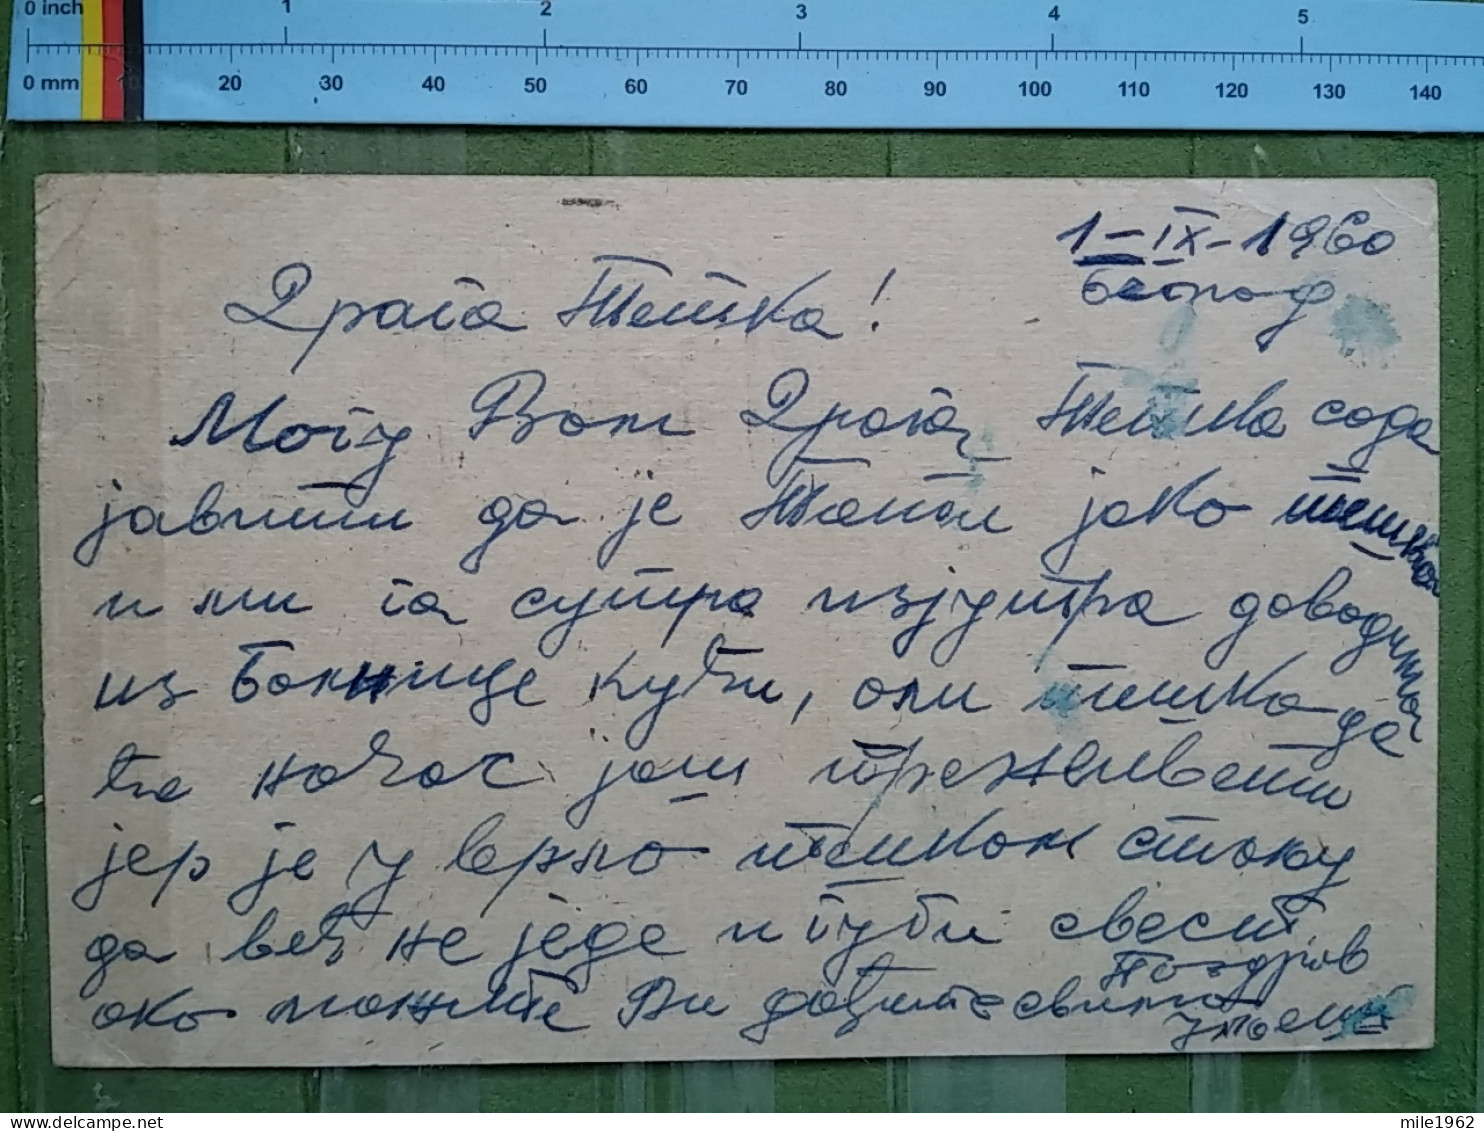 0 inch 1 2 3 4 5
0 mm 10 20 30 40 50 60 70 80 90 100 110 120 130 140
1-IX-1960
Београд
Драга Тетка!
Могу Вам Драга Тетка сада
јавити да је Тата јако тешко
и ми га сутра изјутра доводимо
из болнице кући, али тешко да
ће ноћас још преживети
јер је у врло тешком стању
да већ не једе и губи свест
ако можете Ви дођите свима
Поздрав